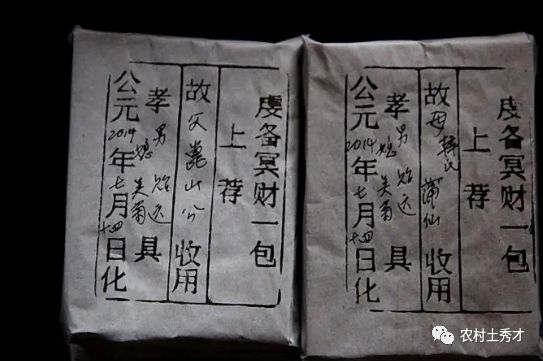 虔备冥财一包
上荐
故父山公收用
孝男贻远媳美菊具
公元2014年七月十四日化
虔备冥财一包
上荐
故母氏蒲仙收用
孝男贻远媳美菊具
公元2014年七月十四日化
农村土秀才